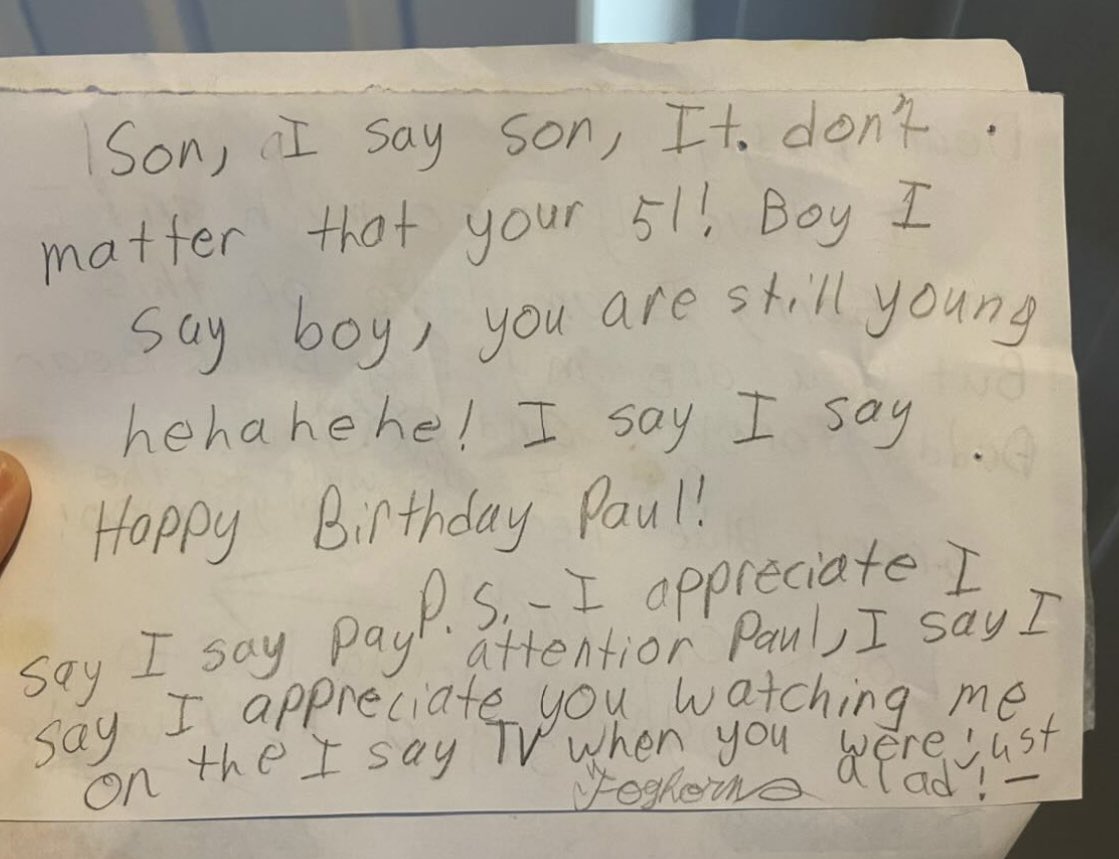 Son, I say son, It. don't
matter that your 51! Boy I
say boy, you are still young
hehahehe! I say I say
Happy Birthday Paul!
P.S. - I appreciate I
say I say pay attentior Paul, I say I
say I appreciate you watching me
on the I say TV when you were just
a lad! -
Foghorn